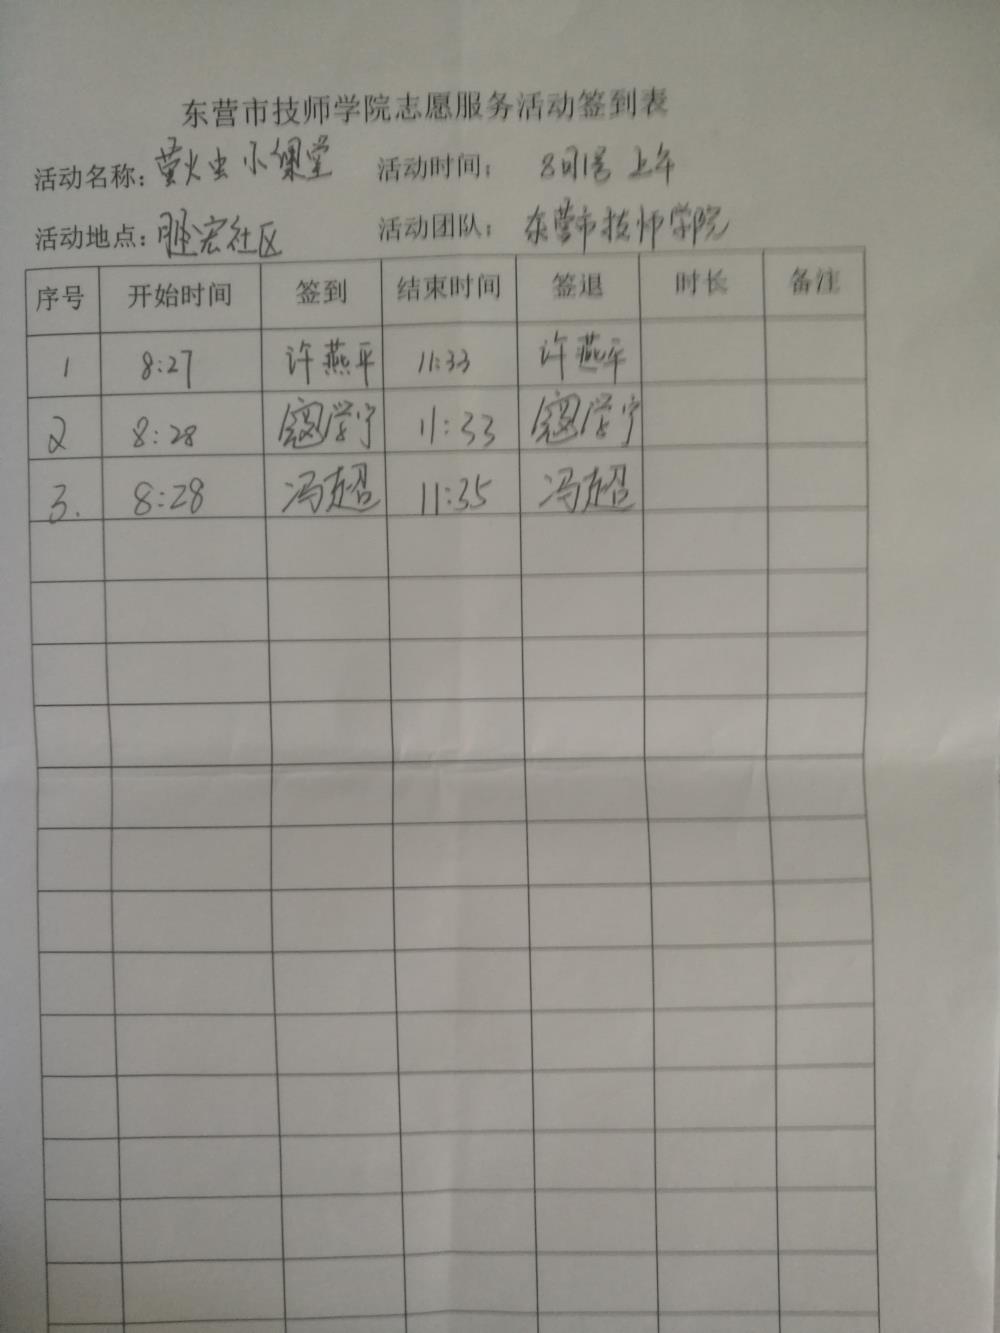 东营市技师学院志愿服务活动签到表
活动名称：萤火虫小课堂 活动时间： 8月1号 上午
活动地点：社区 活动团队： 东营市技师学院
序号 开始时间 签到 结束时间 签退 时长 备注
1 8:27 许燕平 11:33 许燕平
2 8:28 寇学宁 11:33 寇学宁
3. 8:28 冯超 11:35 冯超